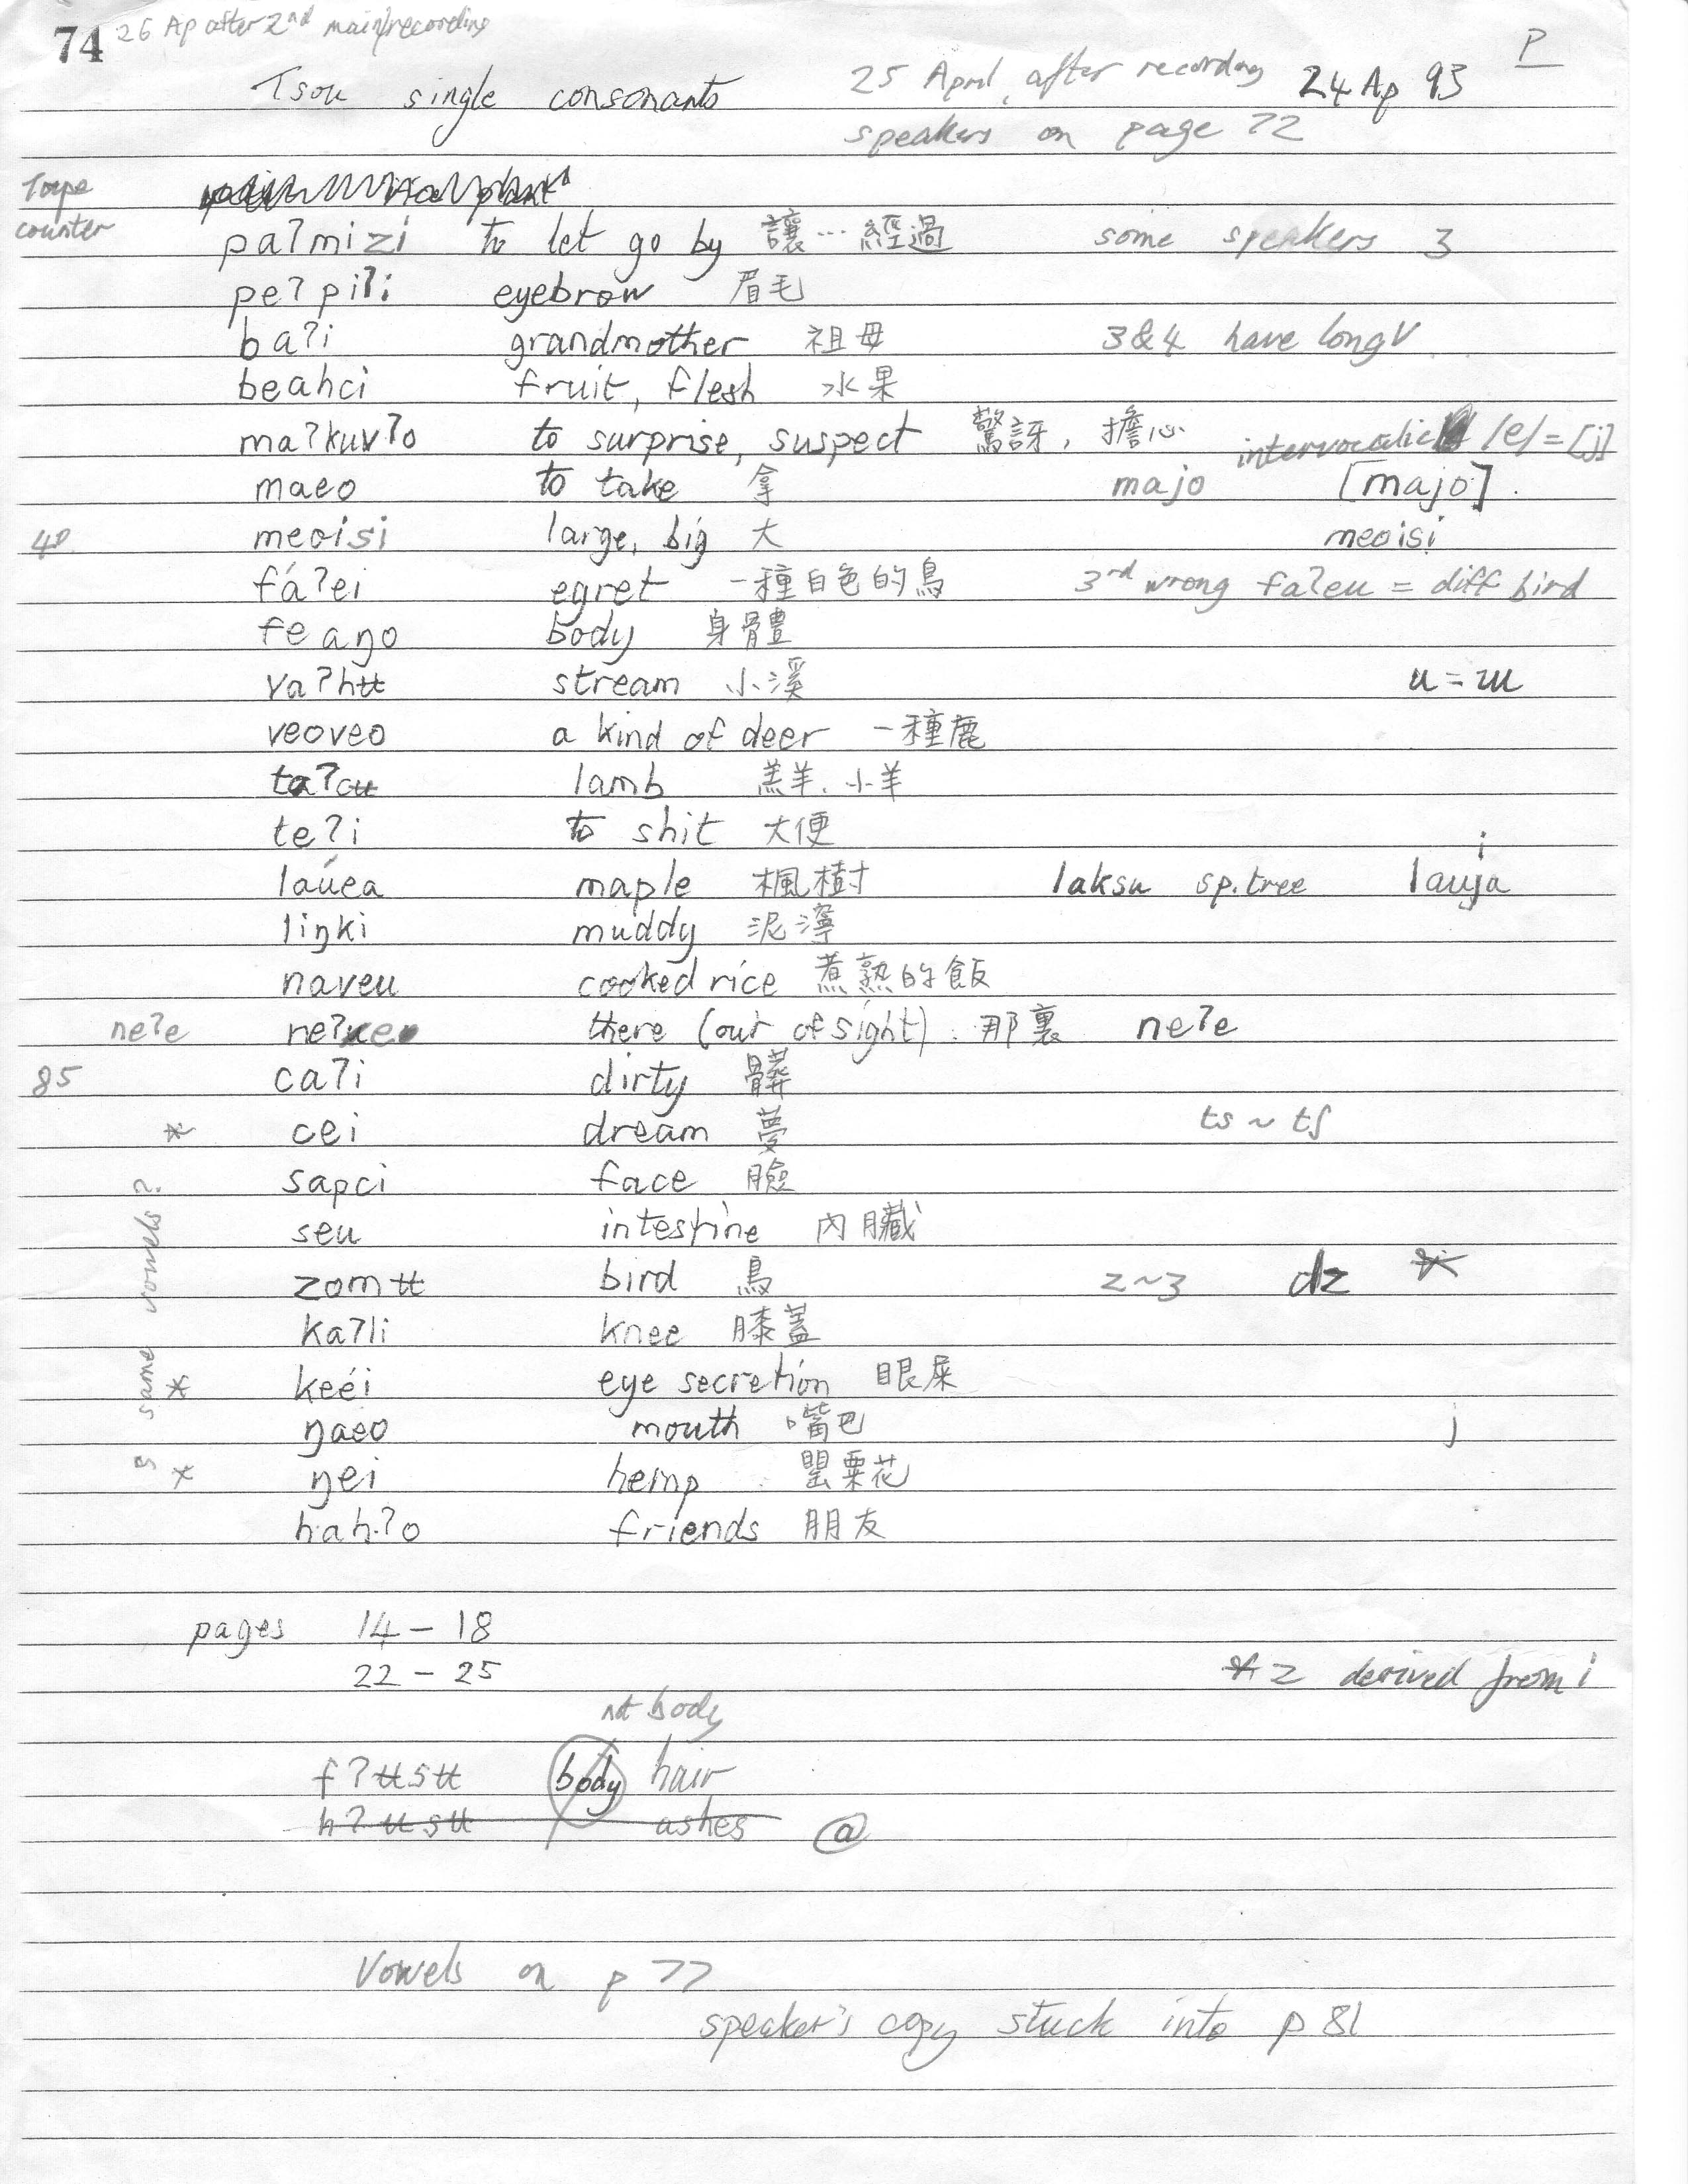 74 26 Ap after 2nd main/recording
P
Tsou single consonants 25 April, after recording 24 Ap 93
speakers on page 72
Tape
counter
paʔmizi to let go by 讓…經過 some speakers ʒ
peʔpiʔi eyebrow 眉毛
baʔi grandmother 祖母 3&4 have long V
beahci fruit, flesh 水果
maʔkuvʔo to surprise, suspect 驚訝, 擔心 intervocalic /e/=[j]
maeo to take 拿 majo [majo].
40 meoisi large, big 大 meoisi
fáʔei egret 一種白色的鳥 3rd wrong faʔeu = diff bird
feaŋo body 身體
vaʔhʉ stream 小溪 u = ɯ
veoveo a kind of deer 一種鹿
taʔcʉ lamb 羔羊. 小羊
teʔi to shit 大便
laúea maple 楓樹 laksu sp. tree lauja i
liŋki muddy 泥濘
naveu cooked rice 煮熟的飯
neʔe there (out of sight). 那裏 neʔe
85 caʔi dirty 髒
* cei dream 夢 ts ~ tʃ
sapci face 臉
seu intestine 內臟
zomʉ bird 鳥 z~ʒ dz *
kaʔli knee 膝蓋
* keéi eye secretion 眼屎
ŋaeo mouth 嘴巴 j
* ŋei hemp 罌粟花
hahʔo friends 朋友
same vowels?
pages 14 – 18
22 – 25
* z derived from i
not body
fʔʉsʉ body hair
hʔʉsʉ ashes @
Vowels on p 77
speaker's copy stuck into p 81